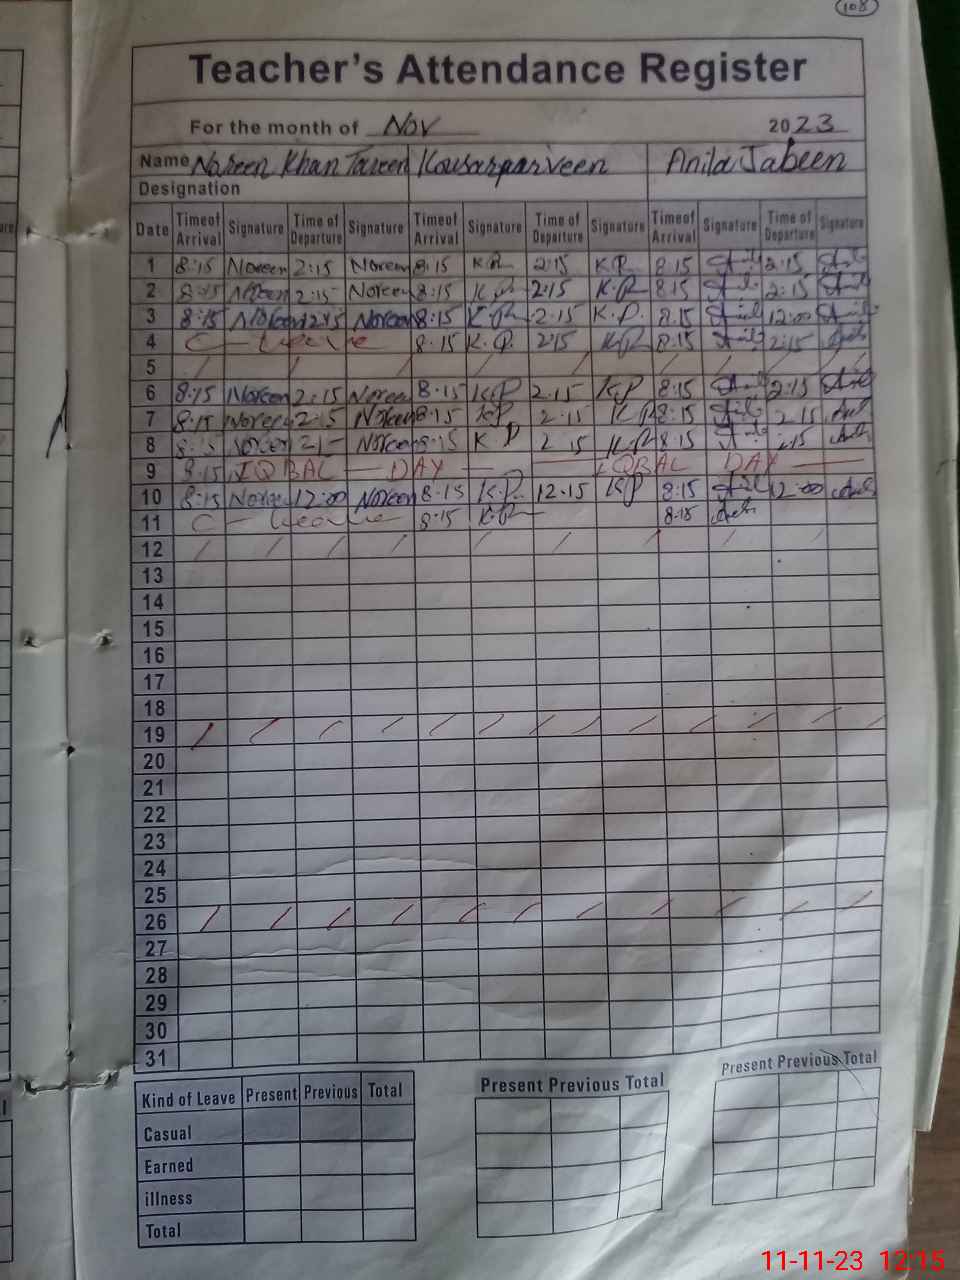 108
Teacher's Attendance Register
For the month of Nov 2023
Name Noreen Khan Tareen Kousarparveen Anila Jabeen
Designation
Date Time of Arrival Signature Time of Departure Signature Time of Arrival Signature Time of Departure Signature Time of Arrival Signature Time of Departure Signature
1 8:15 Noreen 2:15 Noreen 8:15 K.P. 2:15 K.P. 8:15 2:15
2 8:15 Noreen 2:15 Noreen 8:15 K.P. 2:15 K.P. 8:15 2:15
3 8:15 Noreen 12:15 Noreen 8:15 K.P. 2:15 K.P. 8:15 12:00
4 C - Leave 8:15 K.P. 2:15 K.P. 8:15 2:15
5
6 8:15 Noreen 2:15 Noreen 8:15 K.P 2:15 K.P 8:15 2:15
7 8:15 Noreen 2:15 Noreen 8:15 K.P 2:15 K.P 8:15 2:15
8 8:15 Noreen Noreen 8:15 K.P 2:15 K.P 8:15 2:15
9 8:15 IQBAL DAY IQBAL DAY
10 8:15 Noreen 12:00 Noreen 8:15 K.P. 12:15 K.P 8:15 12:00
11 C - Leave 8:15 K.P. 8:15
12
13
14
15
16
17
18
19
20
21
22
23
24
25
26
27
28
29
30
31
Kind of Leave Present Previous Total Present Previous Total Present Previous Total
Casual
Earned
illness
Total
11-11-23 12:15